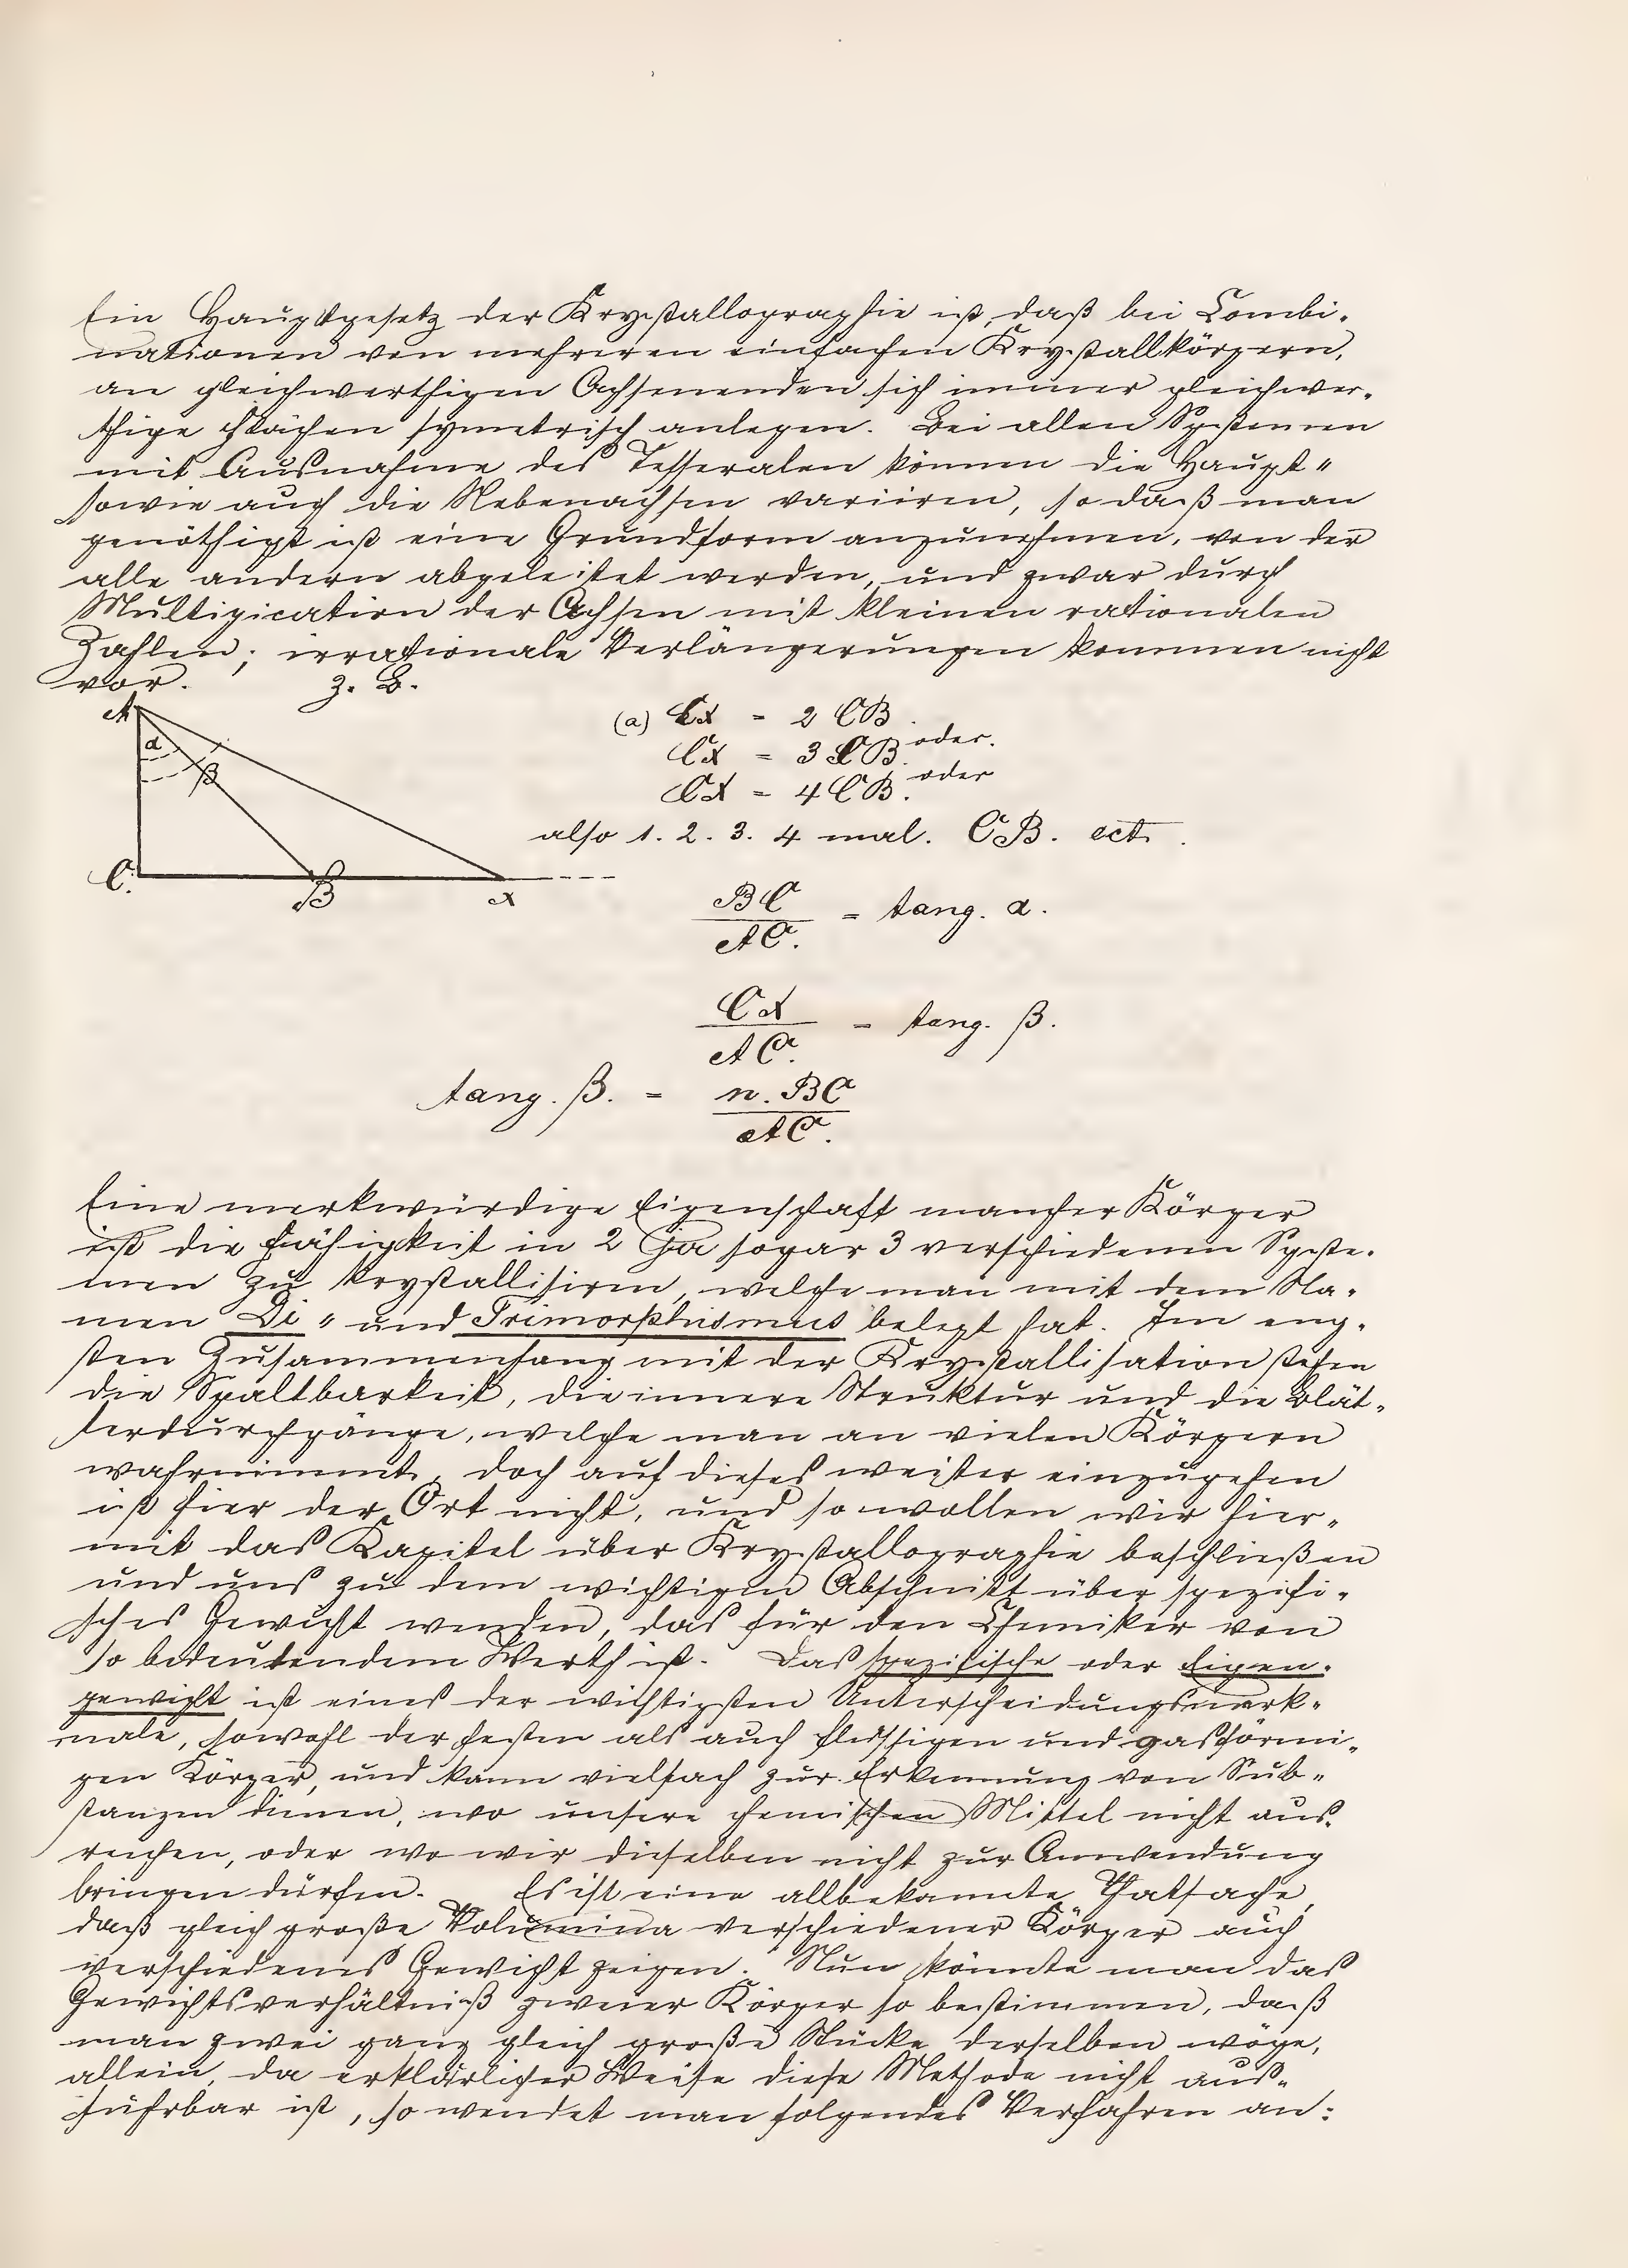 Ein Hauptgesetz der Krystallographie ist, daß bei Combi-
nationen von mehreren einfachen Krystallkörpern,
an gleichwerthigen Achsenenden sich immer gleichwer-
thige Flächen symetrisch anlegen. Bei allen Systemen
mit Ausnahme des Tesseralen können die Haupt-
sowie auch die Nebenachsen variiren, so daß man
genöthigt ist eine Grundform anzunehmen, von der
alle andern abgeleitet werden, und zwar durch
Multipication der Achsen mit kleinen rationalen
Zahlen; irrationale Verlängerungen kommen nicht
vor. z. B.
A
α
β
C.
B
x
(a) Cx = 2 CB.
Cx = 3 CB. oder.
Cx = 4 CB. oder
also 1. 2. 3. 4 mal. CB. ect.
BC
AC. = tang. α.
Cx
AC. = tang. β.
tang. β. = n. BC
AC.
Eine merkwürdige Eigenschaft mancher Körper
ist die Fähigkeit in 2 ja sogar 3 verschiedenen Syste-
men zu krystallisiren, welche man mit dem Na-
men Di- und Trimorphismus belegt hat. Im eng-
sten Zusammenhang mit der Krystallisation stehen
die Spaltbarkeit, die innere Struktur und die Blät-
terdurchgänge, welche man an vielen Körpern
wahrnimmt, doch auf dieses weiter einzugehen
ist hier der Ort nicht, und so wollen wir hier-
mit das Kapitel über Krystallographie beschließen
und uns zu dem wichtigen Abschnitt über spezifi-
sches Gewicht wenden, das für den Chemiker von
so bedeutendem Werth ist. Das spezifische oder Eigen-
gewicht ist eines der wichtigsten Unterscheidungsmerk-
male, sowohl der festen als auch flüssigen und gasförmi-
gen Körper, und kann vielfach zur Erkennung von Sub-
stanzen dienen, wo unsere chemischen Mittel nicht aus-
reichen, oder wo wir dieselben nicht zur Anwendung
bringen dürfen. Es ist eine allbekannte Thatsache,
daß gleich große Volumina verschiedener Körper auch
verschiedenes Gewicht zeigen. Nun könnte man das
Gewichtsverhältniß zweier Körper so bestimmen, daß
man zwei ganz gleich große Stücke derselben wöge,
allein, da erklärlicher Weise diese Methode nicht aus-
führbar ist, so wendet man folgendes Verfahren an: